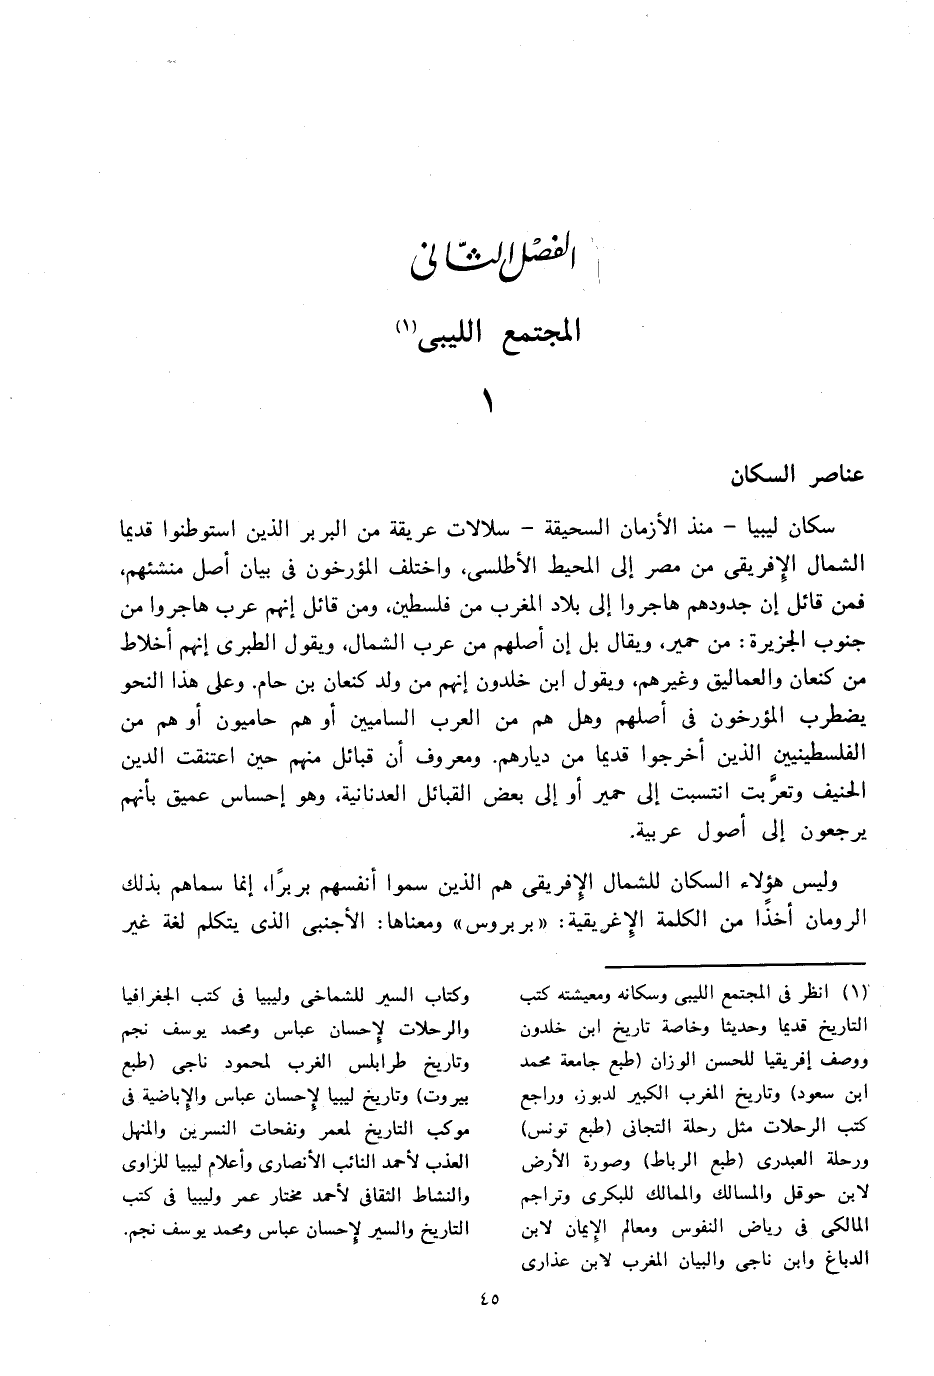 الفصل الثاني
المجتمع الليبى(١)
١
عناصر السكان
سكان ليبيا - منذ الأزمان السحيقة - سلالات عريقة من البربر الذين استوطنوا قديما
الشمال الإفريقى من مصر إلى المحيط الأطلسى، واختلف المؤرخون فى بيان أصل منشئهم،
فمن قائل إن جدودهم هاجروا إلى بلاد المغرب من فلسطين، ومن قائل إنهم عرب هاجروا من
جنوب الجزيرة: من حمير، ويقال بل إن أصلهم من عرب الشمال، ويقول الطبرى إنهم أخلاط
من كنعان والعماليق وغيرهم، ويقول ابن خلدون إنهم من ولد كنعان بن حام. وعلى هذا النحو
يضطرب المؤرخون فى أصلهم وهل هم من العرب الساميين أو هم حاميون أو هم من
الفلسطينيين الذين أخرجوا قديما من ديارهم. ومعروف أن قبائل منهم حين اعتنقت الدين
الحنيف وتعرَّبت انتسبت إلى حمير أو إلى بعض القبائل العدنانية، وهو إحساس عميق بأنهم
يرجعون إلى أصول عربية.
وليس هؤلاء السكان للشمال الإفريقى هم الذين سموا أنفسهم بربرًا، إنما سماهم بذلك
الرومان أخذًا من الكلمة الإغريقية: «بربروس» ومعناها: الأجنبى الذى يتكلم لغة غير
(١) انظر فى المجتمع الليبى وسكانه ومعيشته كتب
التاريخ قديما وحديثا وخاصة تاريخ ابن خلدون
ووصف إفريقيا للحسن الوزان (طبع جامعة محمد
ابن سعود) وتاريخ المغرب الكبير لدبوز، وراجع
كتب الرحلات مثل رحلة التجانى (طبع تونس)
ورحلة العبدرى (طبع الرباط) وصورة الأرض
لابن حوقل والمسالك والممالك للبكرى وتراجم
المالكى فى رياض النفوس ومعالم الإيمان لابن
الدباغ وابن ناجى والبيان المغرب لابن عذارى
وكتاب السير للشماخى وليبيا فى كتب الجغرافيا
والرحلات لإحسان عباس ومحمد يوسف نجم
وتاريخ طرابلس الغرب لمحمود ناجى (طبع
بيروت) وتاريخ ليبيا لإحسان عباس والإباضية فى
موكب التاريخ لمعمر ونفحات النسرين والمنهل
العذب لأحمد النائب الأنصارى وأعلام ليبيا للزاوى
والنشاط الثقافى لأحمد مختار عمر وليبيا فى كتب
التاريخ والسير لإحسان عباس ومحمد يوسف نجم.
٤٥